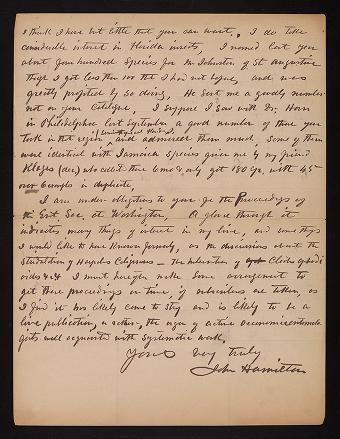 I think I have but little that you can want. I do take
considerable interest in Florida insects, I named last year
about four hundred species for Mr Johnston of St Augustine
though I got less than 100 that I had not before, and was
greatly profited by so doing, He sent me a goodly number
not on your Catalogue. I suppose I saw with Dr. Horn
in Philadelphia last September a good number of those you
took in that region and admired them much, Some of them
were identical with Jamaica species given me by my friend
Klages (dec) who collected there
examples in duplicate,
I am under obligations to you for the Proceedings of
the Ent. Soc. at Washington. A glance through it
indicates many things of interest in my line, and some things
I would like to have known formerly, as the discussions about the
I must hereafter make some arrangement to
get these proceedings in time, if subscribers are taken, as
I find it has likely come to stay and is likely to be a
live publication, or rather, the organ of active
gists well acquainted with systematic work.
Yours very truly
John Hamilton